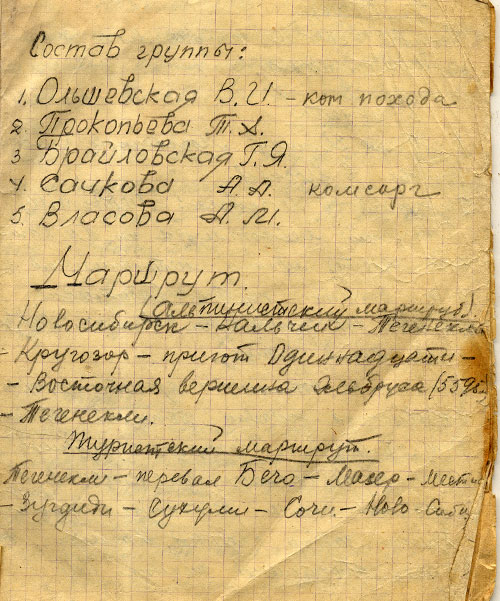 Состав группы:
1. Ольшевская В.И. – ком похода
2. Прокопьева Т.А.
3. Брайловская Г.Я.
4. Сачкова А.А. комсорг
5. Власова А.М.
Маршрут.
(Альпинистский маршрут).
Новосибирск – Нальчик – Тегенекли
– Кругозор – приют Одиннадцати –
– Восточная вершина Эльбруса (559
– Тегенекли.
Туристский маршрут.
Тегенекли – перевал Бечо – Мазер – Мести
– Зугдиди – Сухуми – Сочи – Ново-Сиби